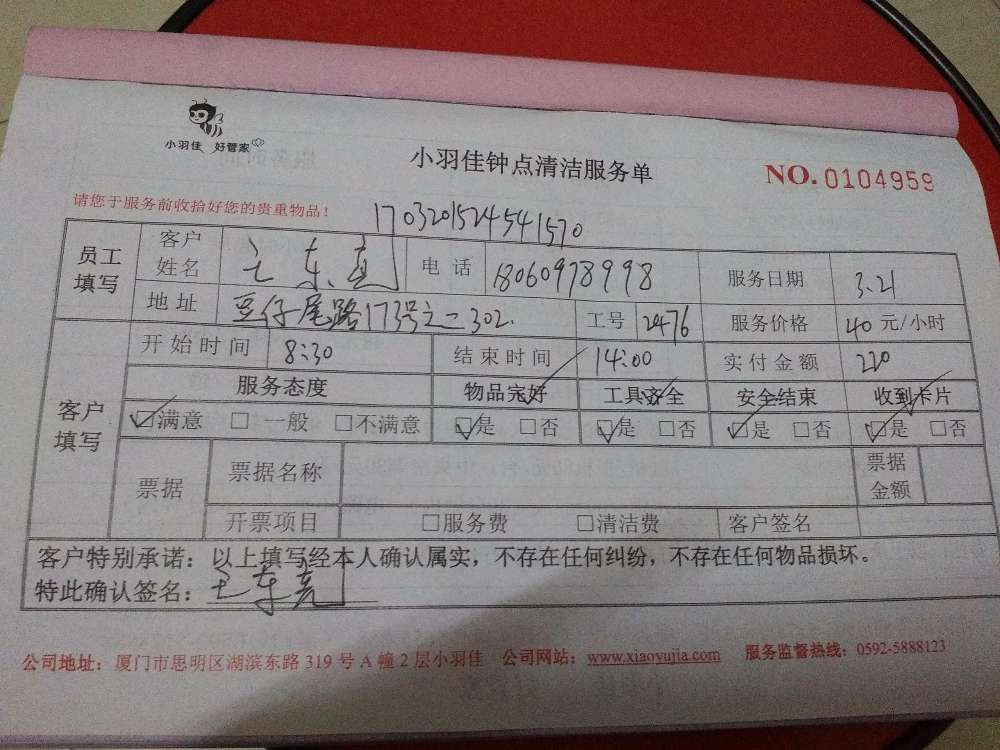 小羽佳 好管家
小羽佳钟点清洁服务单
NO.0104959
请您于服务前收拾好您的贵重物品！
1703201524541570
员工填写 客户姓名 王东亮 电话 18060978998 服务日期 3.21
地址 豆仔尾路173号之二302. 工号 2476 服务价格 40元/小时
客户填写 开始时间 8:30 结束时间 14:00 实付金额 220
服务态度 物品完好 工具齐全 安全结束 收到卡片
☑满意 □一般 □不满意 ☑是 □否 ☑是 □否 ☑是 □否 ☑是 □否
票据 票据名称 票据金额
开票项目 □服务费 □清洁费 客户签名
客户特别承诺：以上填写经本人确认属实，不存在任何纠纷，不存在任何物品损坏。
特此确认签名：王东亮
公司地址：厦门市思明区湖滨东路319号A幢2层小羽佳 公司网站：www.xiaoyujia.com 服务监督热线：0592-5888123